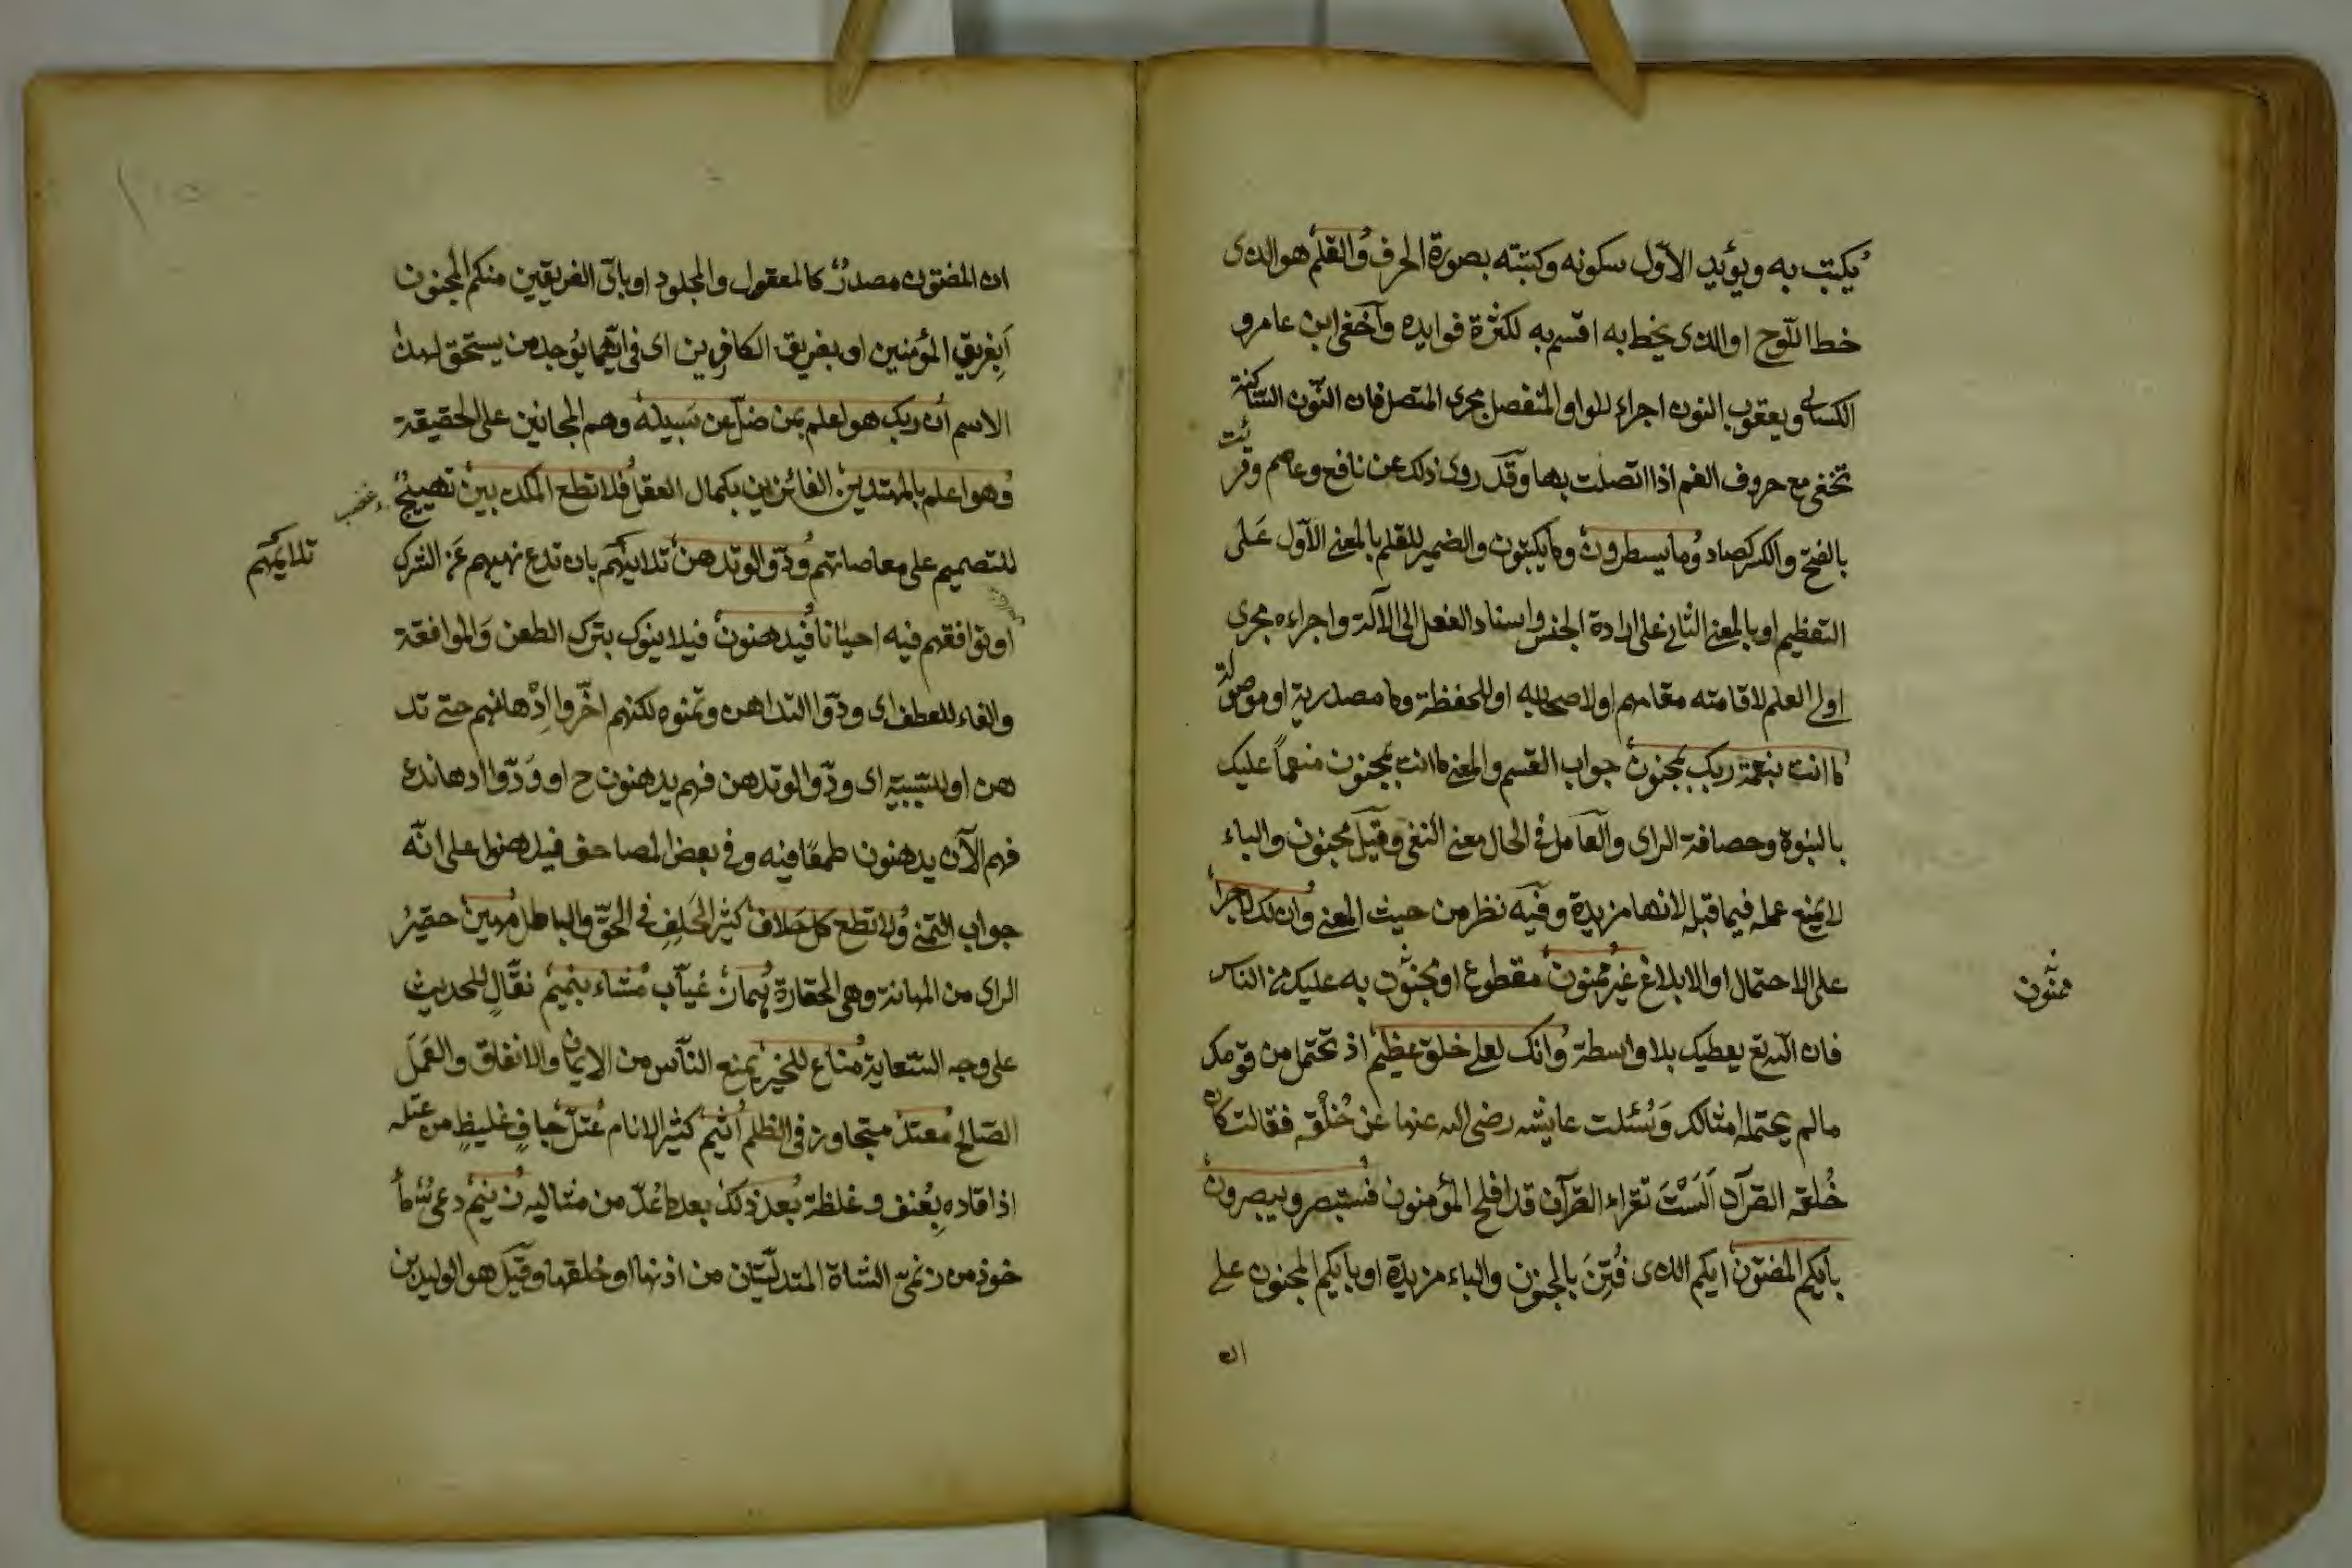 يكتب به ويؤيد الاوّل سكونه وكتبته بصورة الحرف والقلم هو الذى
خط اللّوح او الذى يخط به اقسم به لكثرة فوايده وآخفى ابن عامر و
الكسائى ويعقوب النون اجراء للواو المنفصل مجرى المتصل فان النّون الساكنة
تخفى مع حروف الفم اذا اتصلت بها وقد روى ذلك عن نافع وعاصم وقرئت
بالفتح والكسر كصاد وما يسطرون وما يكتبون والضمير للقلم بالمعنى الاوّل عَلى
التعظيم او بالمعنى الثانى على ارادة الجنس واسناد الفعل الى الآلة واجراءه مجرى
اولى العلم لاقامته مقامهم او لاصحابه او للحفظة وما مصدرية او موصولة
ما انت بنعمة ربك بمجنون جواب القسم والمعنى ما انت بمجنون منعماً عليك
بالنبوة وحصافة الراى والعامل فى الحال معنى النفى وقيل مجنون والباء
لا يمنع عمله فيما قبله لانها مزيدة وفيه نظر من حيث المعنى وان لك لاجراً
على الاحتمال او الابلاغ غير ممنون مقطوع او ممنون به عليك من الناس
ممنون
فان الله تع يعطيك بلا واسطة وانك لعلى خلق عظيم اذ تحتمل من قومك
مالم يحتمله امثالك وَسُئلت عايشه رضى الله عنها عن خُلْقه فقالت كان
خُلقه القرآن اَلَسْتَ تقراء القرآن قد افلح المؤمنون فستبصر ويبصرون
بأيكم المفتون ايكم الذى فُتِنَ بالجنون والباء مزيدة او بايكم المجنون على
ان
ان المفتون مصدرٌ كالمعقول والمجلود او باىّ الفريقين منكم المجنون
اَبِفريق المؤمنين او بفريق الكافرين اى فى ايّهما يُوجد من يستحق لهذا
الاسم ان ربك هو اعلم بمن ضلّ عن سَبيله وهم المجانين على الحقيقة
وهو اعلم بالمهتدين الفائزين بكمال العقل فلا تطع المكذبين تهييجٌ
للتصميم على معاصاتهم ودّوا لو تدهن تلاينهم بان تدع نهيهم عَن الشرك
تلاينهم
او توافقهم فيه احيانا فيدهنون فيلاينوك بترك الطعن وَالموافقة
والفاء للعطف اى ودّوا التداهن وتمنوه لكنهم اخّروا اِدْهانهم حتى تد
هن او للسّببيّة اى ودّوا لو تدهن فهم يدهنون ح او وَدّوا ادهانك
فهم الآن يدهنون طمعًا فيه وفى بعض المصاحف فيدهنوا على انّه
جواب التمنى ولا تطع كل حلاف كثير الحَلِفِ فى الحقّ والباطل مهين حقيرُ
الراى من المهانة وهى الحقارة همّاز غيّاب مشّاء بنميم نقّالٍ للحديث
على وجه السّعاية منّاع للخير يمنع النّاس من الايمان والانفاق والعَمَل
الصّالح معتد متجاوز فى الظلم أثيم كثير الاثام عتلّ جافٍ غليظٍ من عتله
اذا قاده بِعُنف وغلظة بعد ذلك بعد ما عُدّ من مثاليه زنيم دعىٌّ مأ
خوذ من زنمتى الشاة المتدلّيتان من اذنها او خلقها وقيل هو الوليد بن